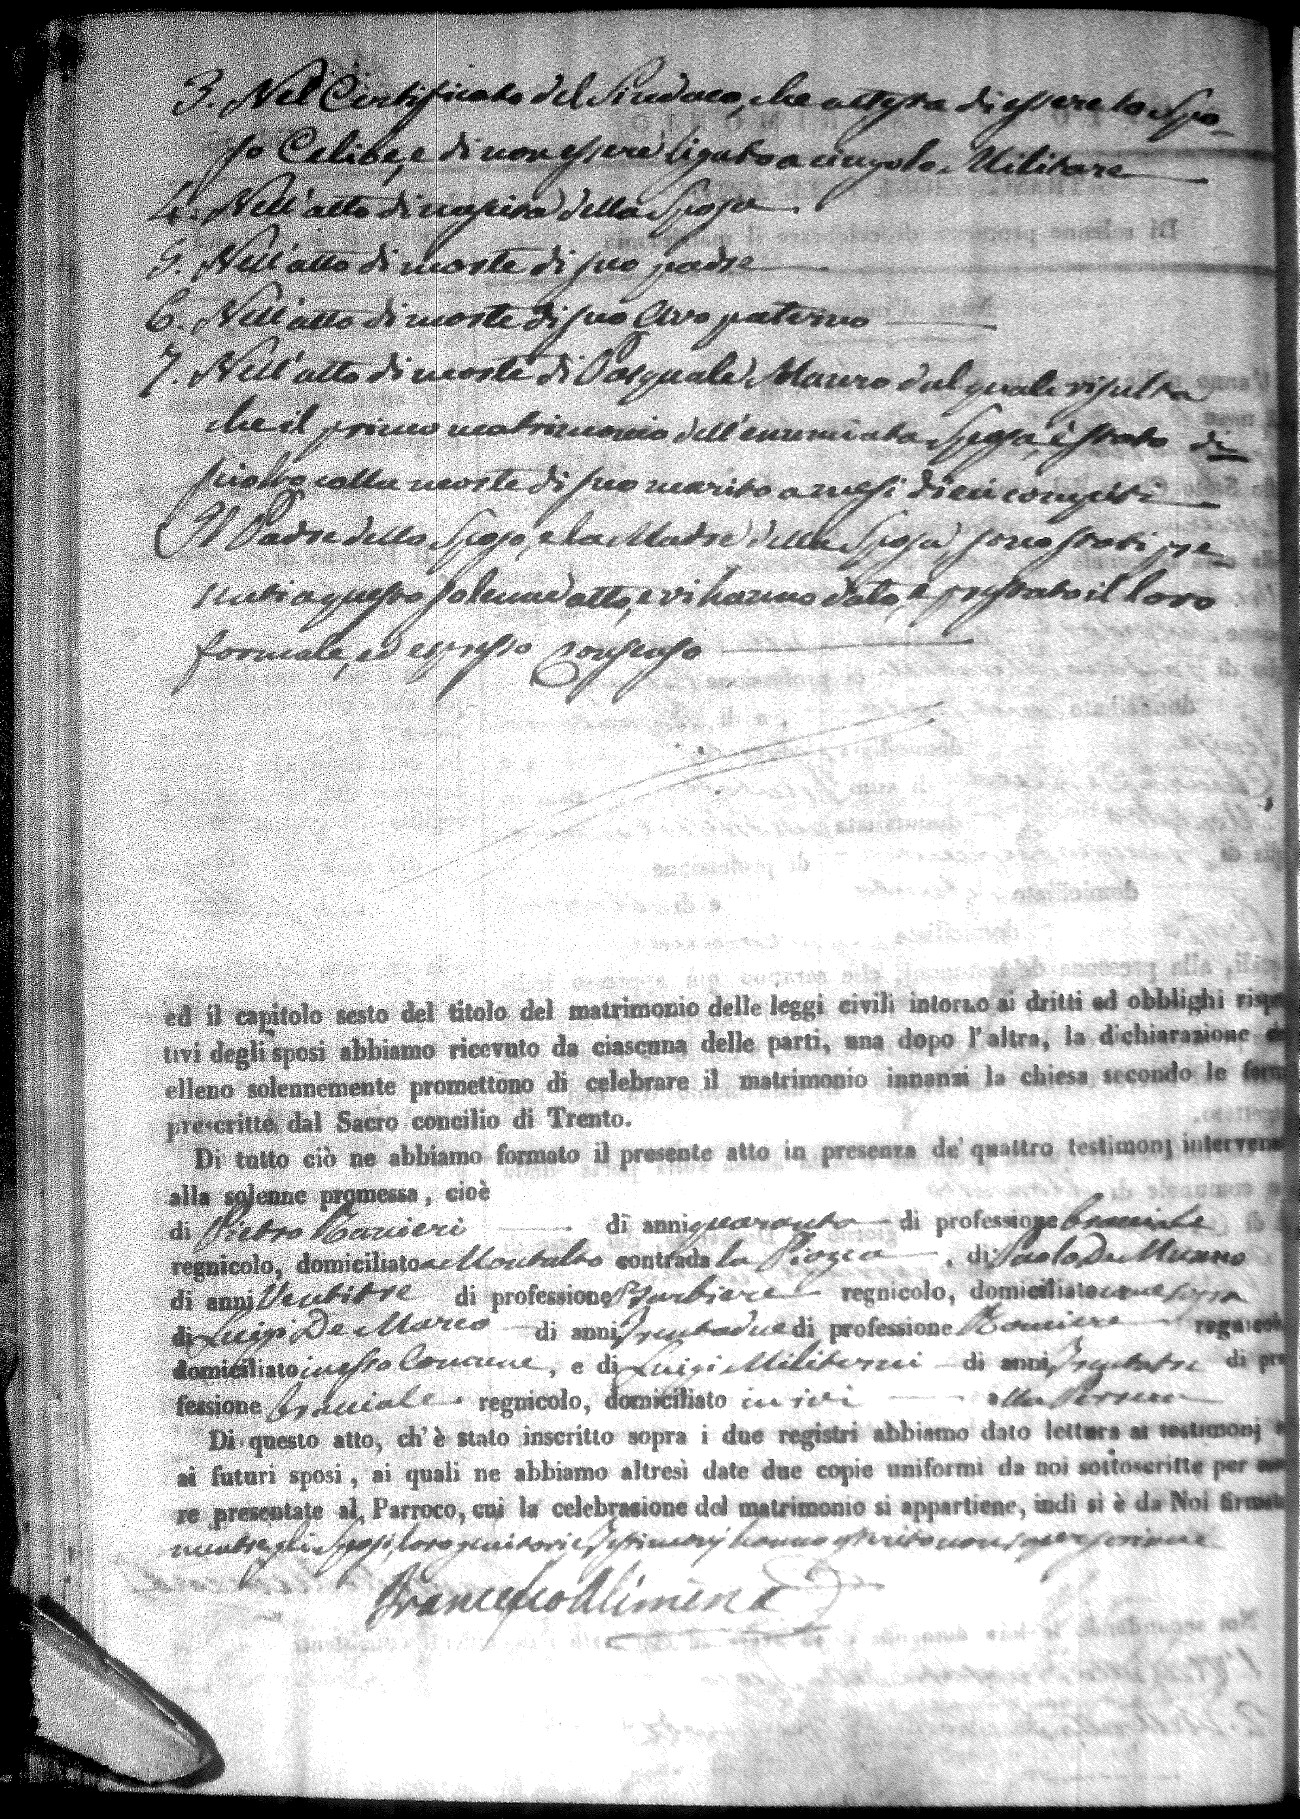 3. Nel Certificato del Sindaco, che attesta di essere lo Spo-
so Celibe, e di non essere ligato a cingolo Militare
4. Nell'atto di nascita della Sposa
5. Nell'atto di morte di suo padre
6. Nell'atto di morte di suo Avo paterno
7. Nell'atto di morte di Pasquale Mauro dal quale risulta
che il primo matrimonio dell'enunciata Sposa, è stato di
sciolto colla morte di suo marito a mesi dieci compiti
Il Padre dello Sposo, e la Madre della Sposa, sono stati pre
senti a questo solenne atto, e vi hanno dato, e prestato il loro
formale, ed espresso Consenso
ed il capitolo sesto del titolo del matrimonio delle leggi civili intorno ai dritti ed obblighi rispet
tivi degli sposi abbiamo ricevuto da ciascuna delle parti, una dopo l'altra, la dichiarazione
elleno solennemente promettono di celebrare il matrimonio innanzi la chiesa secondo le forme
prescritte dal Sacro concilio di Trento.
Di tutto ciò ne abbiamo formato il presente atto in presenza de' quattro testimonj intervenuti
alla solenne promessa, cioè
di Pietro Ranieri di anni quaranta di professione bracciale
regnicolo, domiciliato a Montalto contrada la Piazza, di Paolo De Munno
di anni Ventitre di professione Barbiere regnicolo, domiciliato come sopra
di Luigi De Marco di anni Trentadue di professione regnicolo
domiciliato in esso Comune, e di Luigi Militerni di anni Trentatre di pro
fessione bracciale regnicolo, domiciliato in ivi
Di questo atto, ch'è stato inscritto sopra i due registri abbiamo dato lettura ai testimonj e
ai futuri sposi, ai quali ne abbiamo altresì date due copie uniformi da noi sottoscritte per esse
re presentate al Parroco, cui la celebrazione del matrimonio si appartiene, indi si è da Noi firmato
mentre gli Sposi, loro genitori e Testimonj hanno asserito non saper scrivere
Francesco Alimena